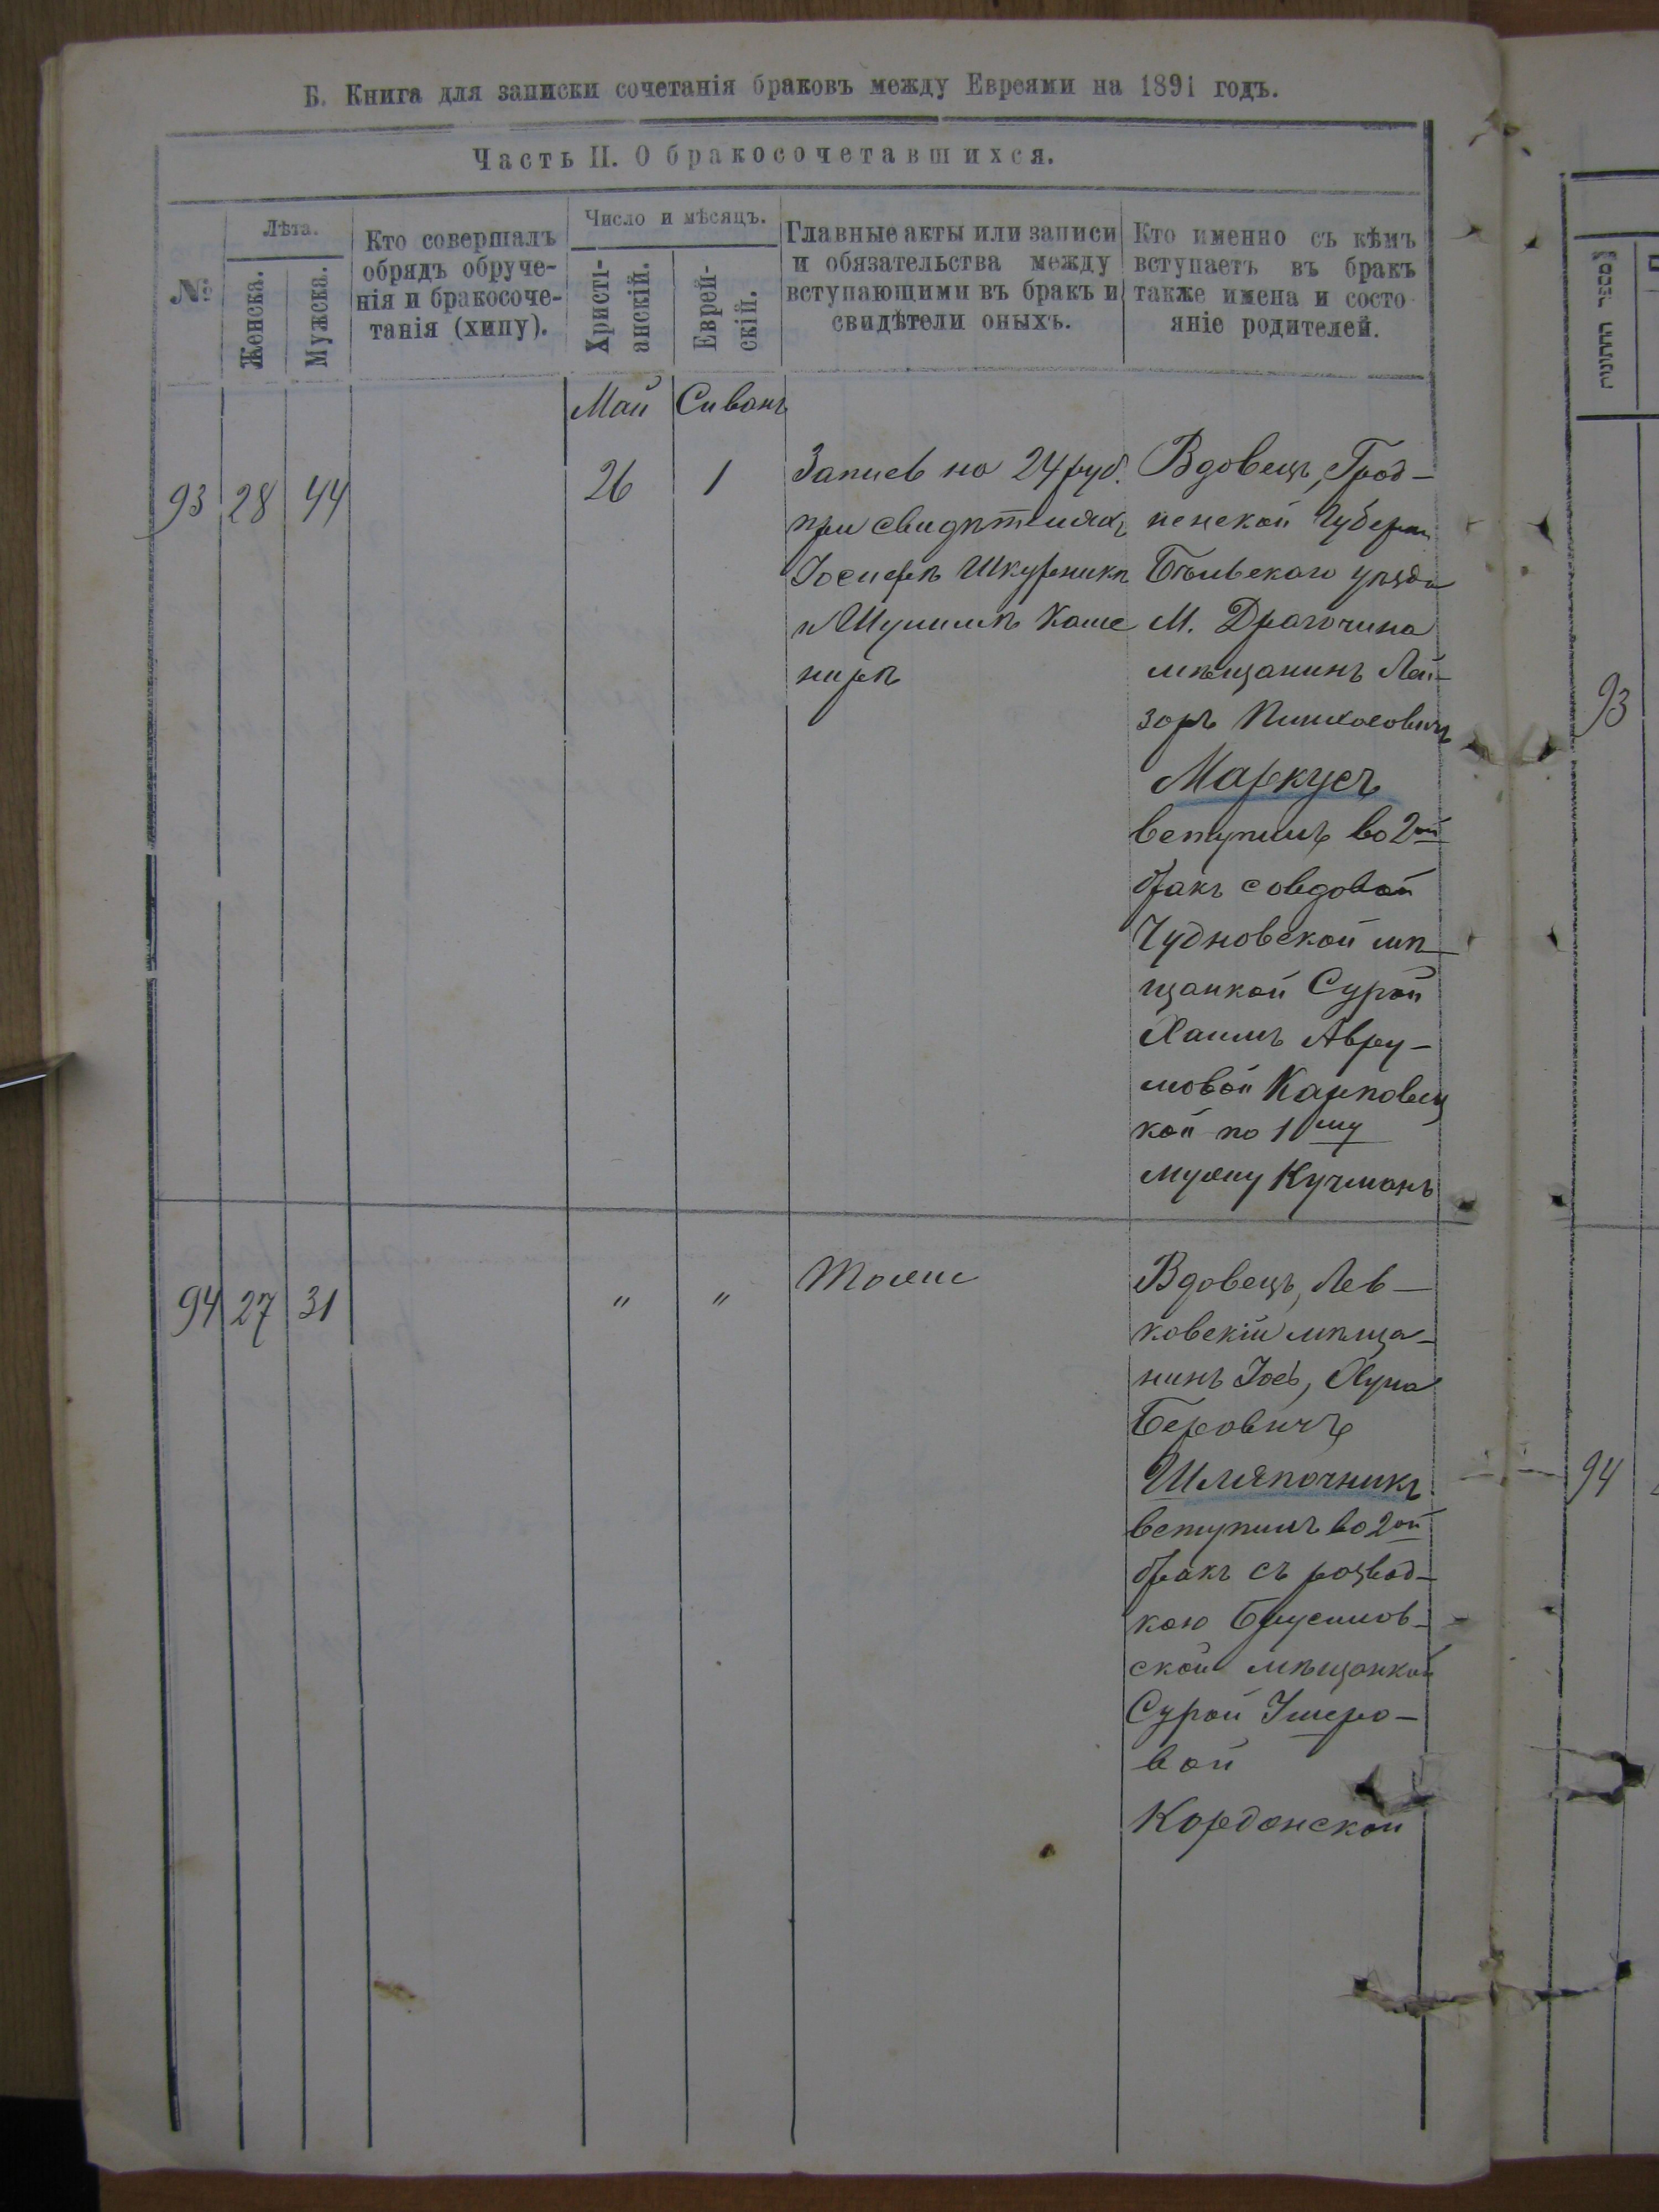 Б. Книга для записки сочетанія браковъ между Евреями на 1891 годъ.
Часть II. О бракосочетавшихся.
№
Лѣта.
Женска.
Мужска.
Кто совершалъ
обрядъ обруче-
нія и бракосоче-
танія (хипу).
Число и мѣсяцъ.
Христі-
анскій.
Еврей-
скій.
Главные акты или записи
и обязательства между
вступающими въ бракъ и
свидѣтели оныхъ.
Кто именно съ кѣмъ
вступаетъ въ бракъ
также имена и состо
яніе родителей.
Май Сиванъ
93 28 44 26 1
Запись на 24 руб.
при свидѣтеляхъ
Іосифѣ Шкурникѣ
и Шулимѣ Каше
нирѣ
Вдовецъ, Грод-
ненской Губерн
Бѣльскаго уѣзда
М. Драгочина
мѣщанинъ Лей-
зоръ Пинхасовичъ
Маркусъ
вступилъ во 2ой
бракъ со вдовой
Чудновской мѣ-
щанкой Сурой
Авру-
мовой Карповец
кой по 1му
мужу Кучманъ
94 27 31 " "
Тоже
Вдовецъ, Лев-
ковскій мѣща-
нинъ Іось, Хуна
Беровичъ
Шляпочникъ
вступилъ во 2ой
бракъ съ развод-
кою Брусилов-
ской мѣщанкой
Сурой Ушеро-
вой
Кордонской
מספר החתונות
93
94